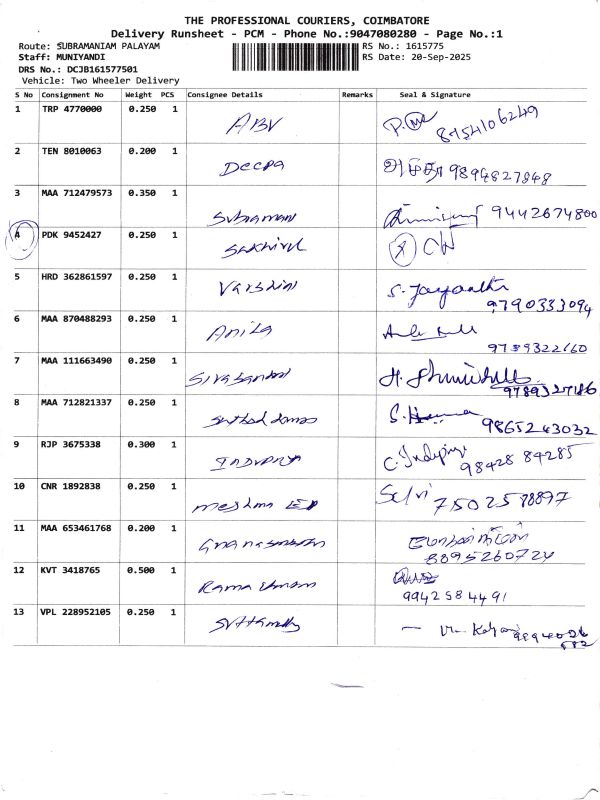 THE PROFESSIONAL COURIERS, COIMBATORE
Delivery Runsheet - PCM - Phone No.:9047080280 - Page No.:1
Route: SUBRAMANIAM PALAYAM RS No.: 1615775
Staff: MUNIYANDI RS Date: 20-Sep-2025
DRS No.: DCJB161577501
Vehicle: Two Wheeler Delivery
S No Consignment No Weight PCS Consignee Details Remarks Seal & Signature
1 TRP 4770000 0.250 1 ABV 8754106249
2 TEN 8010063 0.200 1 Deepa 9894827848
3 MAA 712479573 0.350 1 Subramani 9442674800
4 PDK 9452427 0.250 1 Sakthivel
5 HRD 362861597 0.250 1 Varshini S. Jayanthi
9790333094
6 MAA 870488293 0.250 1 Anita
9789322160
7 MAA 111663490 0.250 1
9789327186
8 MAA 712821337 0.250 1 S.
9865243032
9 RJP 3675338 0.300 1 Induriya C.
98428 84285
10 CNR 1892838 0.250 1 Meshma Selvi 7502598897
11 MAA 653461768 0.200 1
8895260724
12 KVT 3418765 0.500 1 Rama
9942584491
13 VPL 228952105 0.250 1